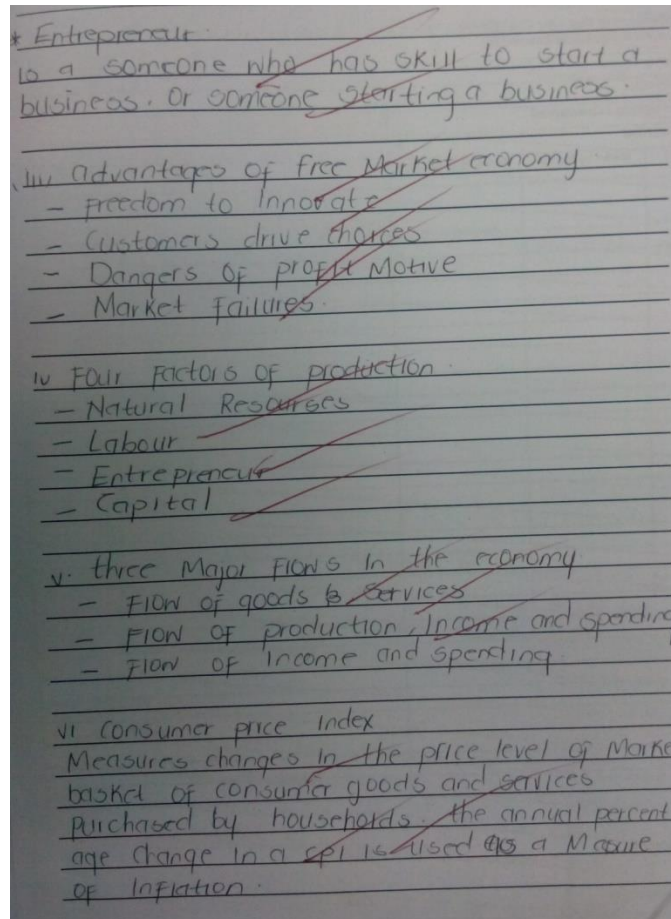 * Entrepreneur.
is a someone who has skill to start a
business. Or someone starting a business.
iii advantages of free Market economy
- Freedom to Innovate
- Customers drive choices
- Dangers of profit Motive
- Market Failures.
iv Four Factors of production.
- Natural Resourses
- Labour
- Entrepreneur
- Capital
v. three Major Flows In the economy
- Flow of goods & Services
- Flow of production, Income and spending
- Flow of Income and spending
vi Consumer price Index
Measures changes in the price level of Marke
basket of consumer goods and services
purchased by households. the annual percent
age change in a CPI is used as a Measure
of Inflation.